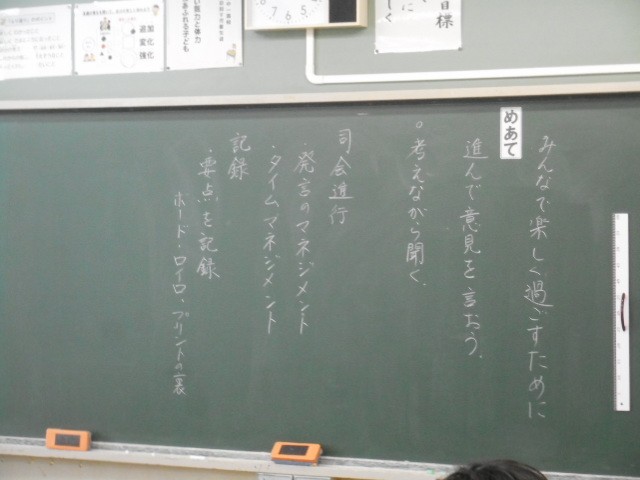 めあて
みんなで楽しく過ごすために
進んで意見を言おう。
○考えながら聞く。
司会進行
・発言のマネジメント
・タイムマネジメント
記録
・要点を記録
ボード・ロイロ・プリントの裏
目標
追加
変化
強化